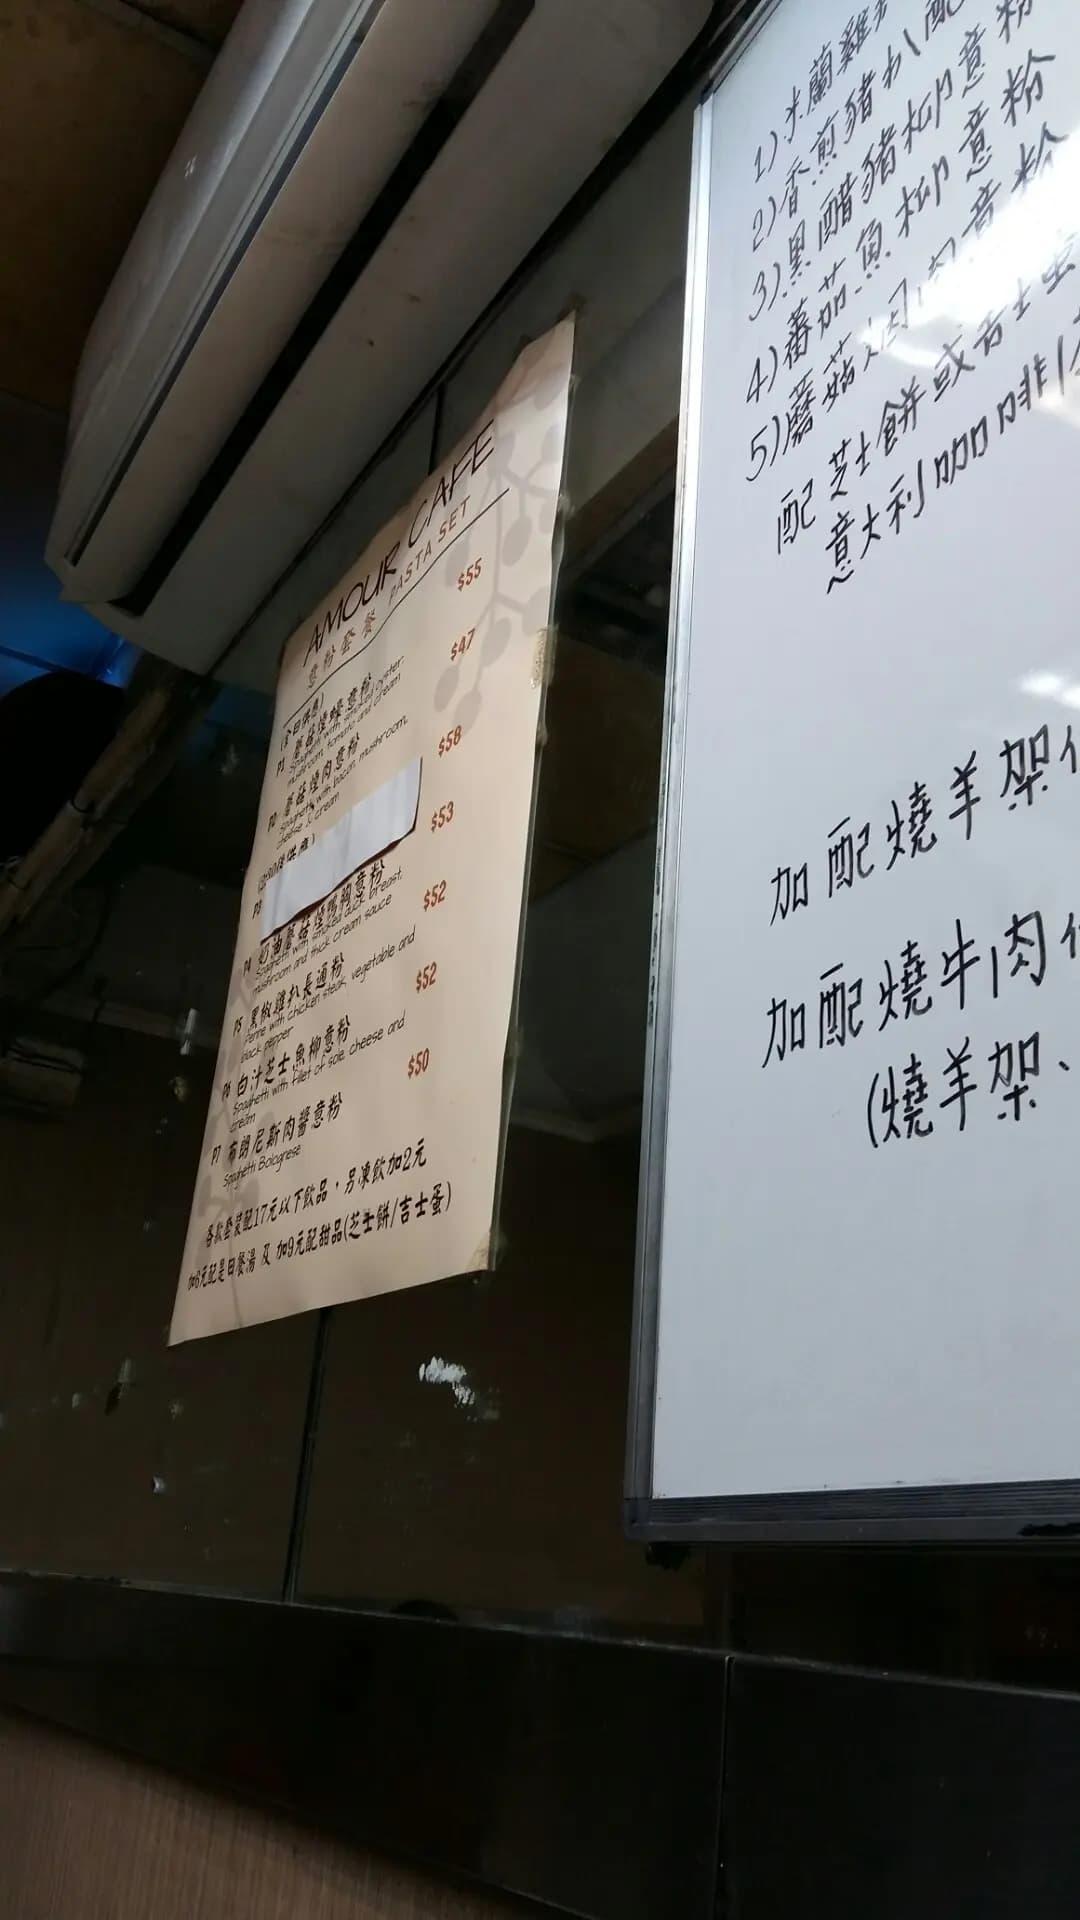 AMOUR CAFE
意粉套餐 PASTA SET
(全日供應)
P1 蘑菇煙蠔意粉 $55
Spaghetti with smoked oyster,
mushroom, tomato and cream
P2 蘑菇煙肉意粉 $47
Spaghetti with bacon, mushroom,
cheese & cream
P3 $58
P4 奶油蘑菇煙鴨胸意粉 $53
Spaghetti with smoked duck breast,
mushroom and thick cream sauce
P5 黑椒雞扒長通粉 $52
Penne with chicken steak, vegetable and
black pepper
P6 白汁芝士魚柳意粉 $52
Spaghetti with fillet of sole, cheese and
cream
P7 布朗尼斯肉醬意粉 $50
Spaghetti Bolognese
各款套裝配17元以下飲品，另凍飲加2元
加6元配是日餐湯 及 加9元配甜品(芝士餅/吉士蛋)
1)米蘭雞
2)香煎豬扒配
3)黑醋豬柳意粉
4)蕃茄魚柳意粉
5)蘑菇煙肉意粉
配芝士餅或吉士蛋
意大利咖啡
加配燒羊架
加配燒牛肉
(燒羊架、